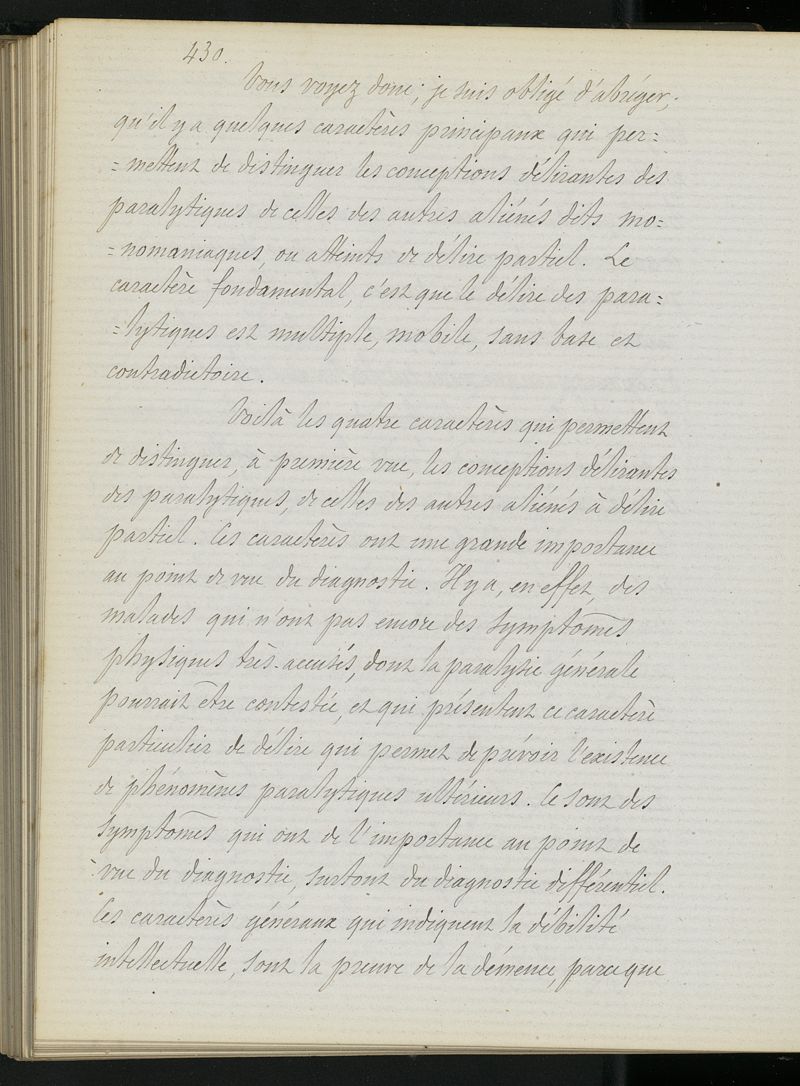 430.
Vous voyez donc, je suis obligé d'abréger,
qu'il y a quelques caractères principaux qui per=
=mettent de distinguer les conceptions délirantes des
paralytiques de celles des autres aliénés dits mo=
=nomaniaques, ou atteints de délire partiel. Le
caractère fondamental, c'est que le délire des para=
=lytiques est multiple, mobile, sans base et
contradictoire.
Voilà les quatre caractères qui permettent
de distinguer, à première vue, les conceptions délirantes
des paralytiques, de celles des autres aliénés à délire
partiel. Ces caractères ont une grande importance
au point de vue du diagnostic. Il y a, en effet, des
malades qui n'ont pas encore des symptômes
physiques très-accusés, dont la paralysie générale
pourrait être contestée, et qui présentent ce caractère
particulier de délire qui permet de prévoir l'existence
de phénomènes paralytiques ultérieurs. Ce sont des
symptômes qui ont de l'importance au point de
vue du diagnostic, surtout du diagnostic différentiel.
Ces caractères généraux qui indiquent la débilité
intellectuelle, sont la preuve de la démence, parce que